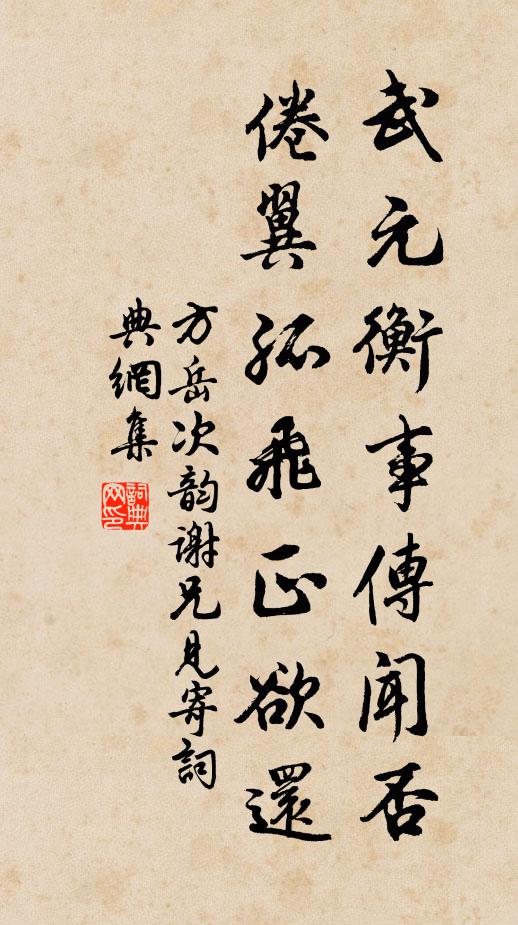 武元衡事傳聞否
倦翼孤飛正欲還
方岳次韵谢兄見寄詞
典網集
詞典
网印